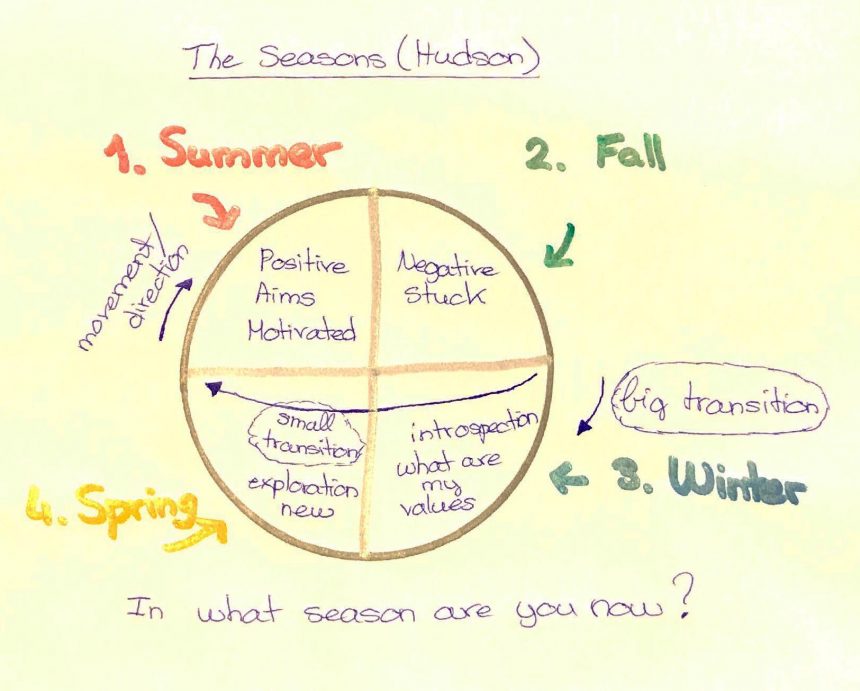 The Seasons (Hudson)
1. Summer
2. Fall
movement/
direction
Positive
Aims
Motivated
Negative
stuck
big transition
small
transition
exploration
new
introspection
what are
my
values
3. Winter
4. Spring
In what season are you now?